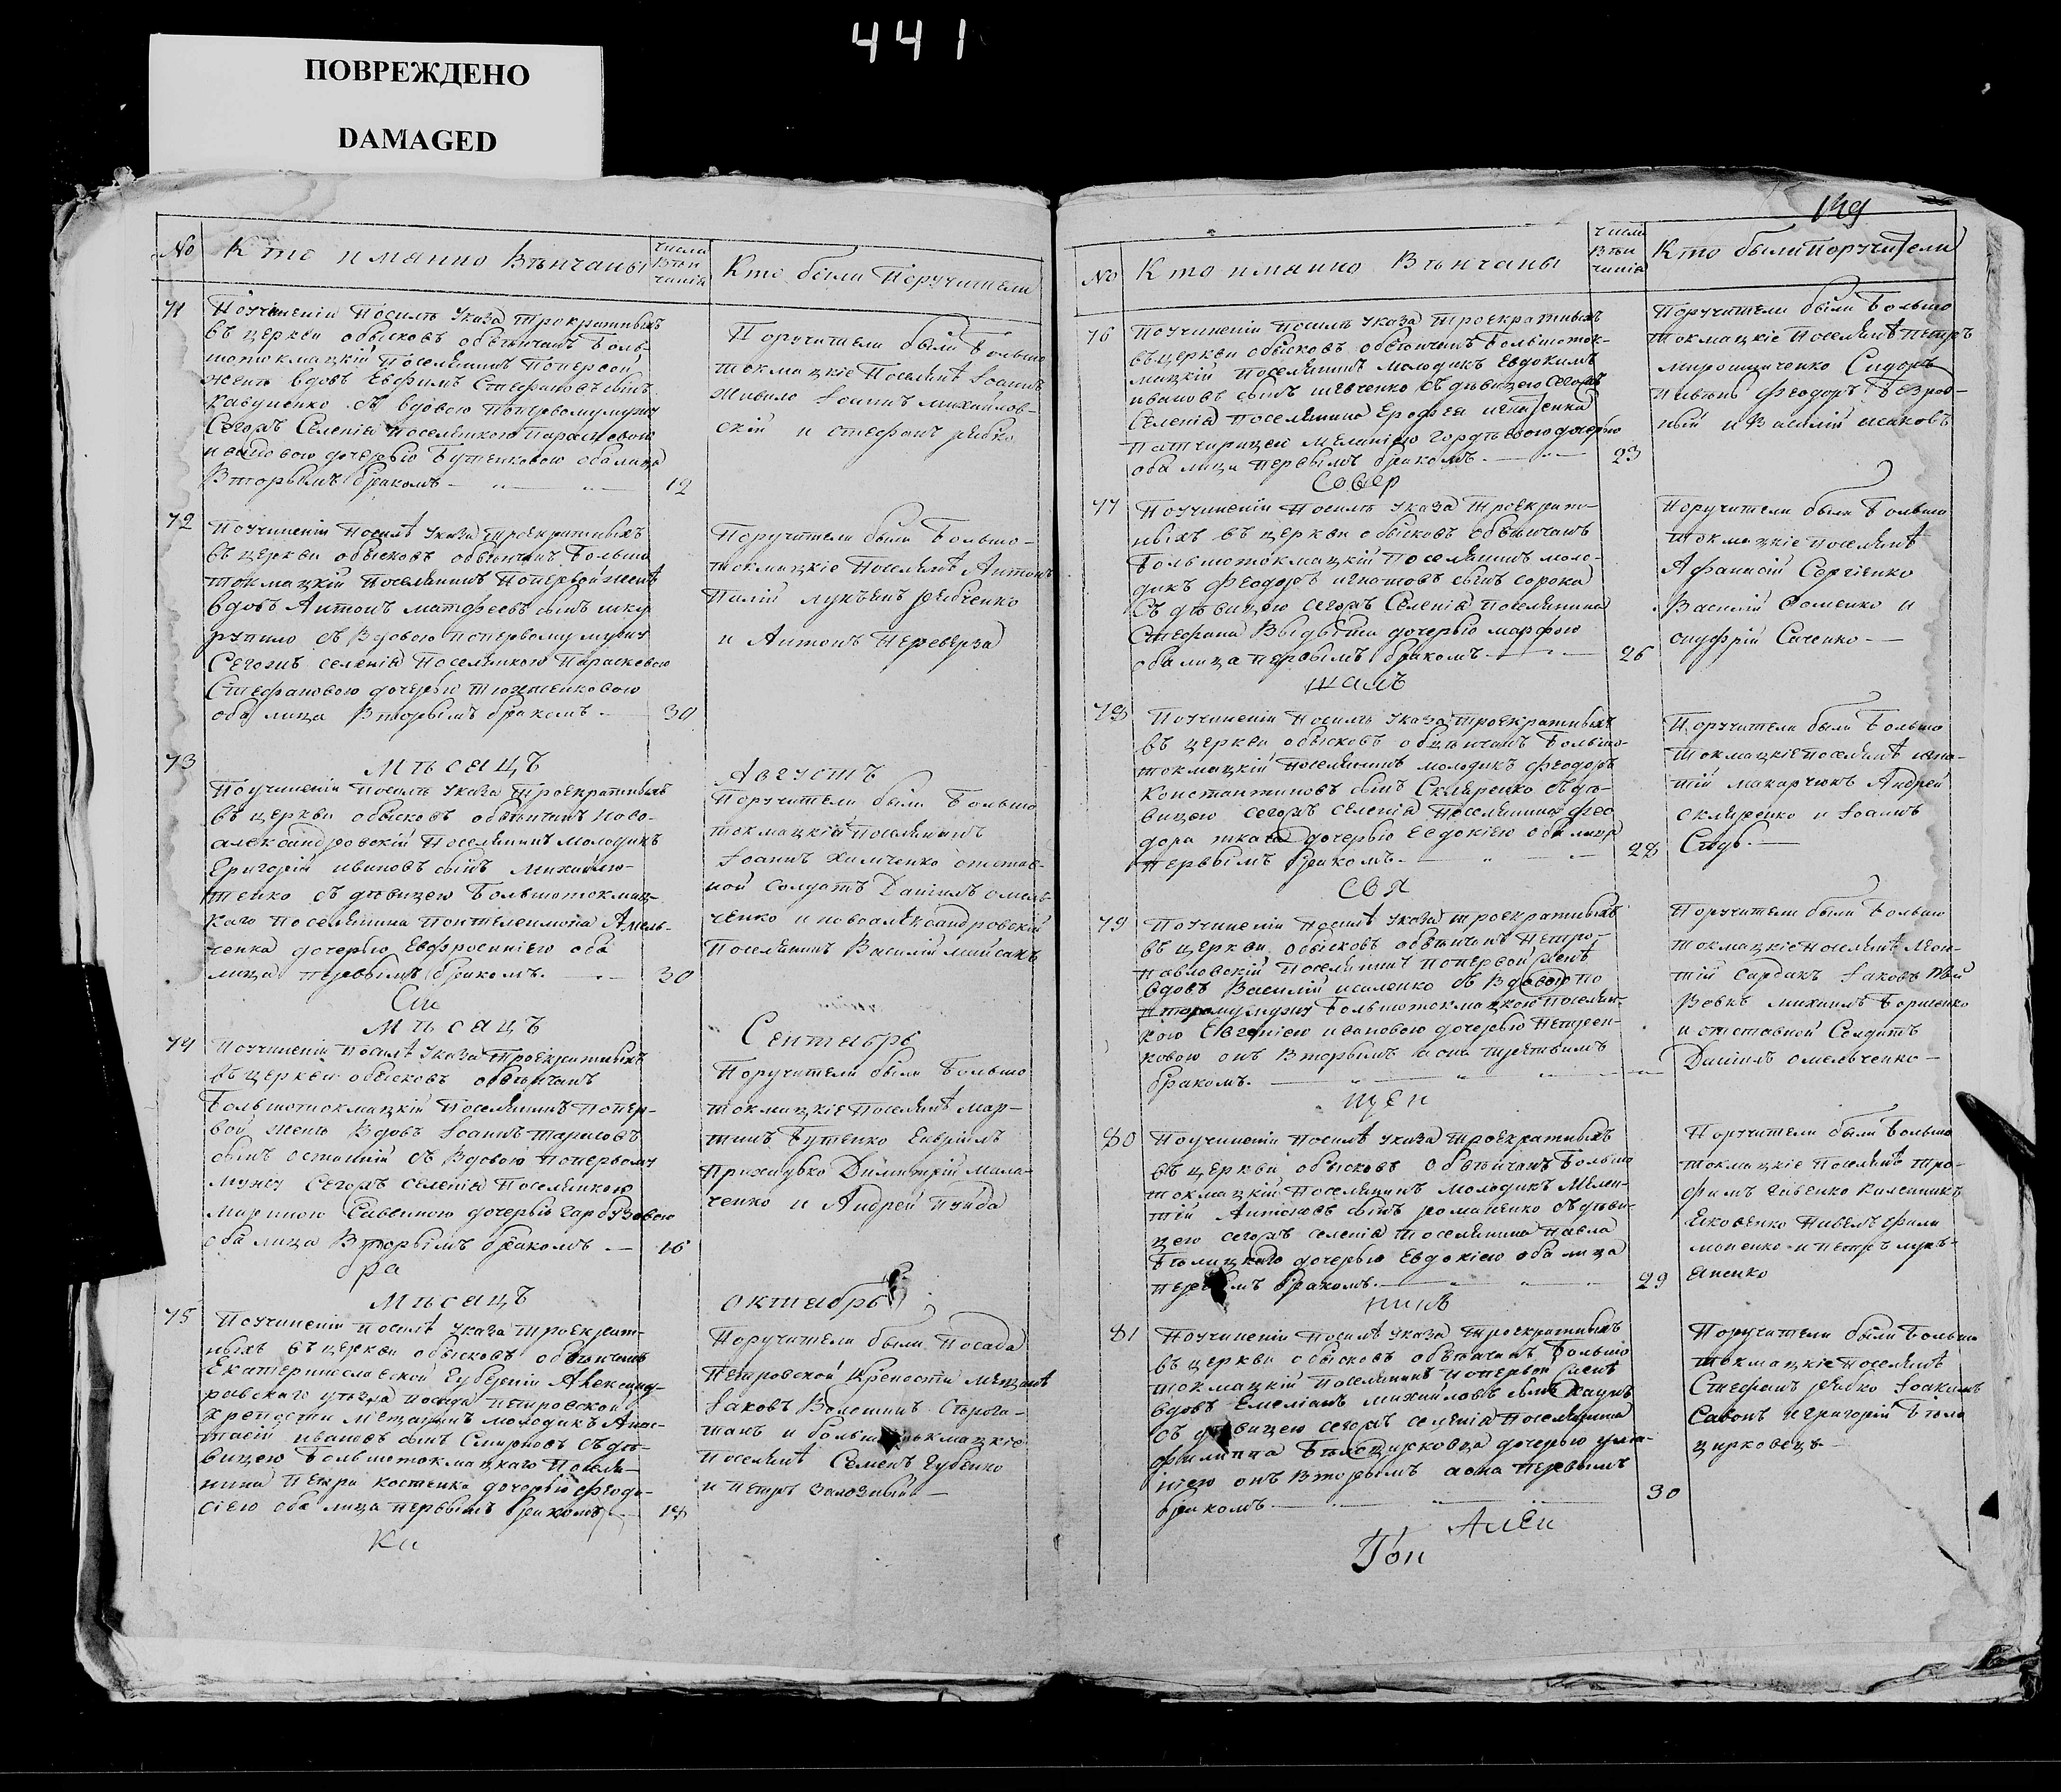 441
ПОВРЕЖДЕНО
DAMAGED
No Кто имянно Вѣнчаны числа Вѣнчанія Кто были Поручители
71
Поучиненіи Посилѣ Указа трократныхъ
въ церкви обысковъ обвѣнчанъ Боль-
шотокмацкій Поселянинъ Поперсой
женѣ вдовъ Евфимъ Стефановъ сынъ
съ вдовою Попервомумужу
Сегожъ Селенія Поселянкою Параскевою
дочерью Бутенковою обалица
Вторымъ бракомъ — 12
Поручители были Большо
токмацкіе Поселянѣ Іоаннъ
Шивило Іоаннъ Михайлов-
скій и Стефанъ Рябко
72
Поучиненіи Посилѣ Указа троекратныхъ
въ церкви обысковъ обвѣнчанъ Большо
токмацкій Поселянинъ Попервойженѣ
вдовъ Антонъ Матфеевъ сынъ шку
рупило съ Вдовою попервому мужу
Сегожъ селенія Поселянкою Параскевою
Стефановою дочерью
оба лица Вторымъ бракомъ — 30
Поручители были Большо-
токмацкіе Поселянѣ Антонъ
Палій Лукьянъ Рябченко
и Антонъ Переверза
73
Мѣсяцъ Августъ
Поучиненіи Посилѣ Указа троекратныхъ
въ церкви обысковъ обвѣнчанъ Ново-
александровскій Поселянинъ молодикъ
Григорій ивановъ сынъ Михайлю-
тенко съ дѣвицею Большотокмац-
каго Поселянина Понтелеимона Амель-
ченка дочерью Евфросиніею оба
лица первымъ бракомъ. — 30
Поручители были Большо
токмацкій Поселянинъ
Іоаннъ Химченко отстав-
ной солдатъ Даніилъ омель-
ченко и новоалександровскій
Поселянинъ Василій Майсакъ
Сіе
74
Мѣсяцъ Сентябрь
Поучиненіи Посилѣ Указа Троекратныхъ
въ церкви обысковъ обвѣнчанъ
Большотокмацкій Поселянинъ попер-
вой женѣ Вдовъ Іоаннъ тарасовъ
сынъ остапній съ Вдовою Попервому
Мужу Сегожъ селенія Поселянкою
Мариною Савиною дочерью Гарбузовою
оба лица Вторымъ бракомъ — 16
Поручители были Большо
токмацкіе Поселянѣ Мар-
тинъ Бутенко Гавріилъ
Прихидько Димитрій мала-
ченко и Андрей Пунда
бра
75
Мѣсяцъ октябрь
Поучиненіи Посилѣ Указа троекрат-
ныхъ въ церкви обысковъ обвѣнчанъ
Екатеринославской Губерніи Александ-
ровскаго уѣзда посада петровской
крепости мѣщанинъ молодикъ Анас-
тасій ивановъ сынъ Смирновъ съ дѣ-
вицею Большотокмацкаго Поселя-
нина Петра костенка дочерью феодо-
сіею оба лица первымъ бракомъ — 18
Поручители были Посада
Петровской Крепости мещанѣ
Іаковъ Волошинъ
и большотокмацкіе
Поселянѣ Семенъ Губенко
и петръ Залозный —
Ки
No Кто имянно Вѣнчаны числа Вѣнчанія Кто были поручители
76
Поучиненіи Посилѣ указа троекратныхъ
въ церкви обысковъ обвѣнчанъ Большоток-
мацкій Поселянинъ молодикъ Евдокимъ
ивановъ сынъ шевченко съ дѣвицею сегожъ
Селенія поселянина Ерофея игнатенка
патчирицей Меланіею Гордѣевою дочерью
оба лица первымъ бракомъ. — 23
Поручители были Большо
токмацкіе Поселянѣ петръ
мирошниченко Сидоръ
пивень Феодоръ Безров-
ный и Василій исаковъ
Совер
77
Поучиненіи Посилѣ указа троекрат-
ныхъ въ церкви обысковъ обвѣнчанъ
Большотокмацкій Поселянинъ моло-
дикъ Феодоръ игнатовъ сынъ сорока
Съ дѣвицею сегожъ Селенія Поселянина
Стефана дочерью марфою
обалица первымъ бракомъ — 26
Поручители были Большо
токмацкіе поселянѣ
Афанасій Сергіенко
Василій Фоменко и
онуфрій Саченко —
шалъ
78
Поучиненіи Посилѣ указа троекратныхъ
въ церкви обысковъ обвѣнчанъ Большо-
токмацкій Поселянинъ молодикъ Феодоръ
Константиновъ сынъ Скляренко съ дѣ-
вицею сегожъ селенія Поселянина фео
дора ткача дочерью Евдокіею обалица
Первымъ бракомъ — 28
Поручители были Большо
токмацкіе поселянѣ игна-
тій макарчюкъ Андрей
скляренко и Іоаннъ
Свя
79
Поучиненіи Посилѣ указа троекратныхъ
въ церкви обысковъ обвѣнчанъ Петро-
павловскій Поселянинъ поперсой женѣ
вдовъ Василій исаенко съ Вдовою по
второмумужу Большотокмацкою поселян-
кою Евгеніею ивановою дочерью Петрен-
ковою онъ Вторымъ а она третьимъ
бракомъ. —
Поручители были Большо
токмацкіе поселянѣ Леон-
тій Сардакъ Іаковъ
Вовкъ михаилъ Борщенко
и отставной Солдатъ
Даніилъ омельченко —
щен
80
Поучиненіи Посилѣ указа троекратныхъ
въ церкви обысковъ обвѣнчанъ Большо
токмацкій Поселянинъ молодикъ Мелен-
тій Антоновъ сынъ романенко съ дѣви-
цею сегожъ селенія Поселянина Павла
дочерью Евдокіею оба лица
первымъ бракомъ. — 29
Поручители были Большо
токмацкіе Поселянѣ тро-
фимъ Гавенко Калинникъ
Яковенко Павелъ фили
моненко и петръ лукь-
яненко
никъ
81
Поучиненіи Посилѣ указа троекратныхъ
въ церкви обысковъ обвѣнчанъ Большо
токмацкій Поселянинъ попервой женѣ
вдовъ Емеліанъ михайловъ сынъ Кацунъ
съ дѣвицею сегожъ селенія Поселянина
филиппа Бѣлоцирковца дочерью ула-
ніею онъ Вторымъ а она первымъ
бракомъ — 30
Поручители были Большо
токмацкіе Поселянѣ
Стефанъ Рябко Іоакимъ
Савонъ и григорій Бѣло
цирковецъ —
Алек
Гон